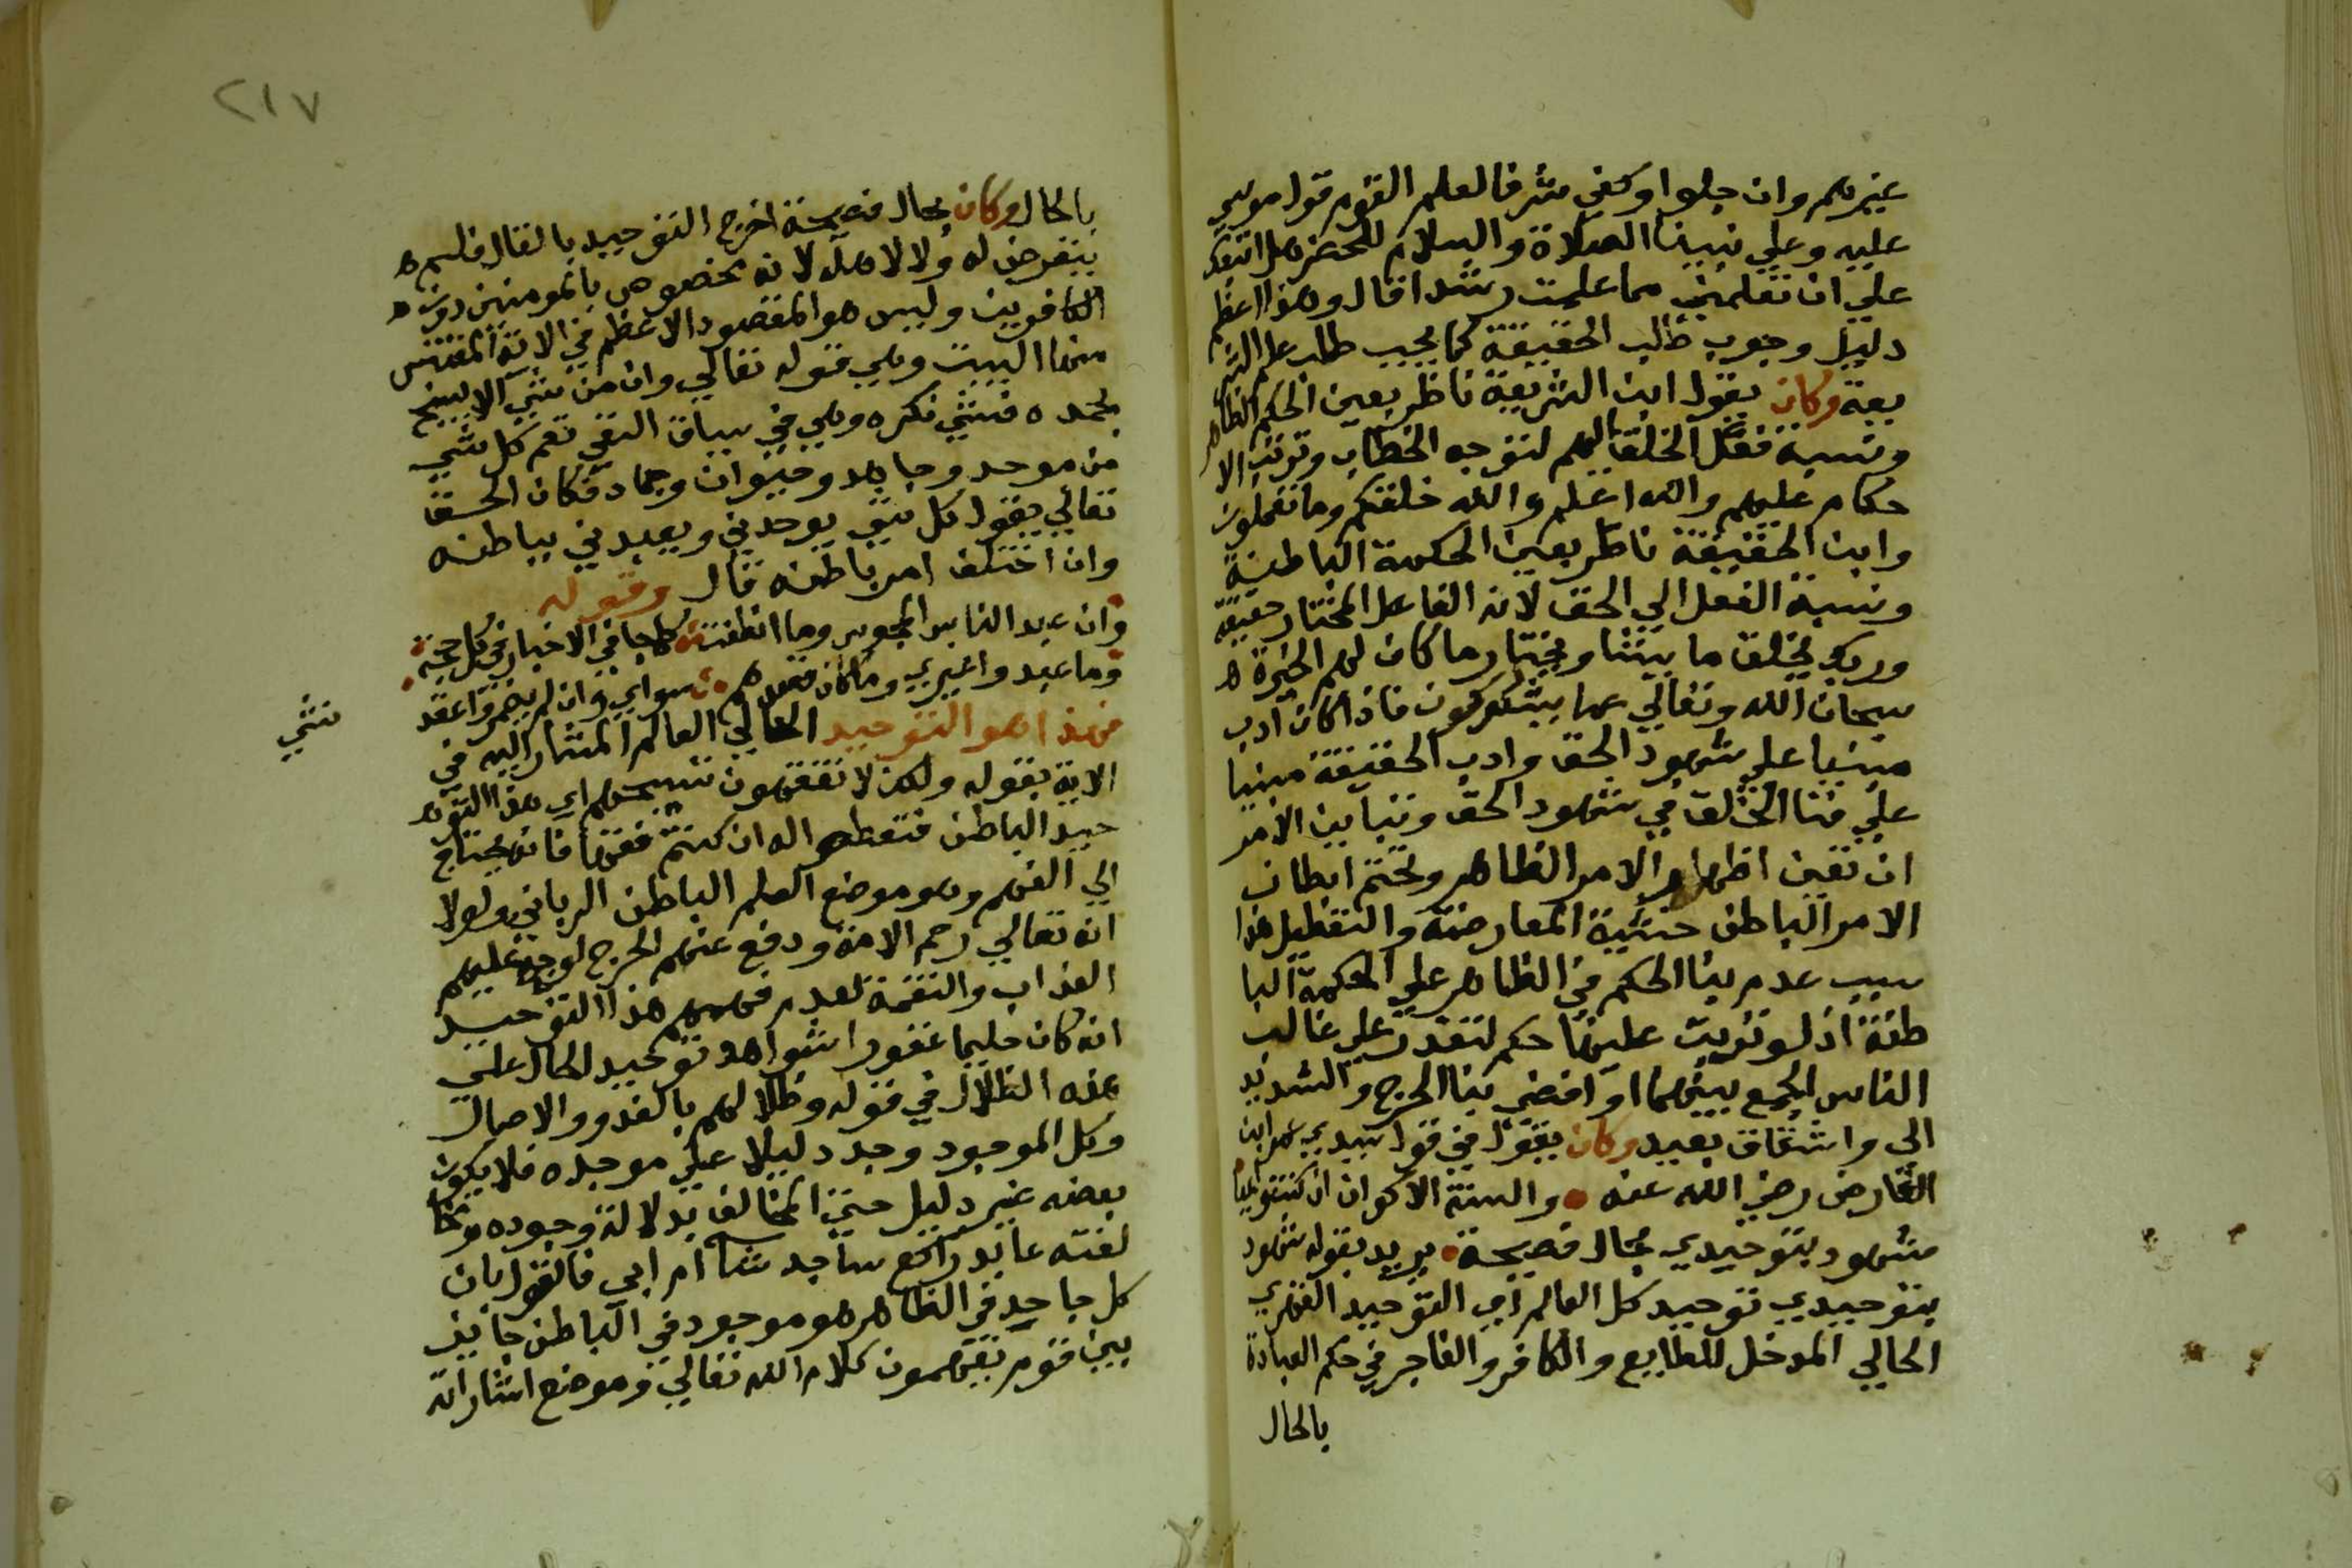 غيرهم وان جلوا وكفي شرفا لعلم القوم قول موسي
عليه وعلي نبينا الصلاة والسلام للخضر هل اتبعك
علي ان تعلمني مما علمت رشدا قال وهذا اعظم
دليل وجوب طالب الحقيقة كما يجب طلب علم الشر
يعة وكان يقول ابن الشريعة ناظر بعين الحكم الظاهر
ونسبة فعل الخلق اليهم لتوجه الخطاب وترتب الا
حكام عليهم والله اعلم والله خلقكم وما تعملون
وابن الحقيقة ناظر بعين الحكمة الباطنة
ونسبة الفعل الي الحق لانه الفاعل المختار حقيقة
وربك يخلق ما يشا ويختار ما كان لهم الخيرة ه
سبحان الله وتعالي عما يشركون فاذا كان ادب
مبنيا علي شهود الحق وادب الحقيقة مبنيا
علي فنا الخلق في شهود الحق وتباين الامر
ان تعين اظهار الامر الظاهر وتحتم ابطان
الامر الباطن خشية المعارضة والتعطيل هذا
سبب عدم بنا الحكم في الظاهر علي الحكمة البا
طنة اذ لو ترتب عليها حكم لتعذر علي غالب
الناس الجمع بينهما او افضي بنا الحرج والشديد
الي واشقاق بعيد وكان يقول في قول سيدي عمر ابن
الفارض رضي الله عنه والسنة الاكوان ان كنت واعيا
شهود بتوحيدي بحال فصيحة يريد بقوله شهود
بتوحيدي توحيد كل العالم اي التوحيد القهري
الحالي المدخل للطايع والكافر والفاجر في حكم العبادة
بالحال
٢١٧
بالحال وكان بحال فصيحة اخرج التوحيد بالقال فلم ه
يتعرض له ولا لاهله لانه مخصوص بالمومنين دون ه
الكافرين وليس هو المقصود الاعظم في الاية المقتبس
منها البيت وهي قوله تعالي وان من شي الا يسبح
بحمده فشي نكره وهي في سياق النفي تعم كل شي
من موحد وجاحد وحيوان وجماد فكان الحق
تعالي يقول كل شي يوحدني ويعبدني بباطنه
وان اختلف امر باطنه قال وقوله
وان عبد النار المجوس وما انطفت كما جا في الاخبار في كل حجة
وما عبدوا غيري وما كان قصدهم سواي وان لم يضمروا عقد
شي
فهذا هو التوحيد الحالي العالم المشار اليه في
الاية بقوله ولكن لا تفقهون تسبيحهم اي هذا التو ه
حيد الباطن فتفطهوا له ان كنتم فقها فانه يحتاج
الي الفهم وهو موضع العلم الباطن الرباني ولولا
انه تعالي رحم الامة ودفع عنهم الحرج لوجه عليهم
العذاب والنقمة لعدم فهمهم هذا التوحيد
انه كان حليما غفورا شواهد توحيد الحال علي
هذه الظلال في قوله وظلالهم بالغدو والاصال
وكل الموجود وجد دليلا علي موجده فلا يكون
بعضه غير دليل حتي المخالف بدلالة وجوده ومخا
لفته عابد راكع ساجد شا ام ابي فالقول بان
كل جاحد في الظاهر هو موجود في الباطن جايز
بين قوم يفهمون كلام الله تعالي وموضع اشاراته